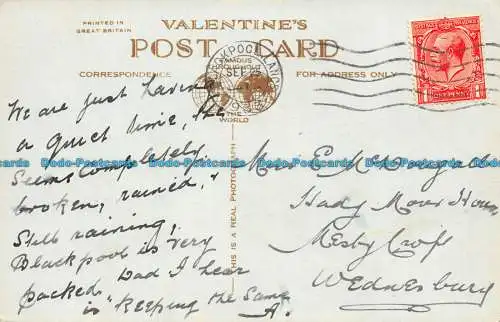 PRINTED IN
GREAT BRITAIN
VALENTINE'S
POST CARD
CORRESPONDENCE
FOR ADDRESS ONLY
FAMOUS
THROUGHOUT
THE
WORLD
THIS IS A REAL PHOTOGRAPH
BLACKPOOL
SEP
POSTAGE REVENUE
ONE PENNY
We are just having
a quiet time,
Seems completely
broken, rained, &
Still raining,
Blackpool is very
packed Dad I hear
is "keeping the Same
A.
Mrs E McDougall
Hady Moor House
Mesty Croft
Wednesbury
Dodo-Postcards Dodo-Postcards Dodo-Postcards Dodo-Postcards